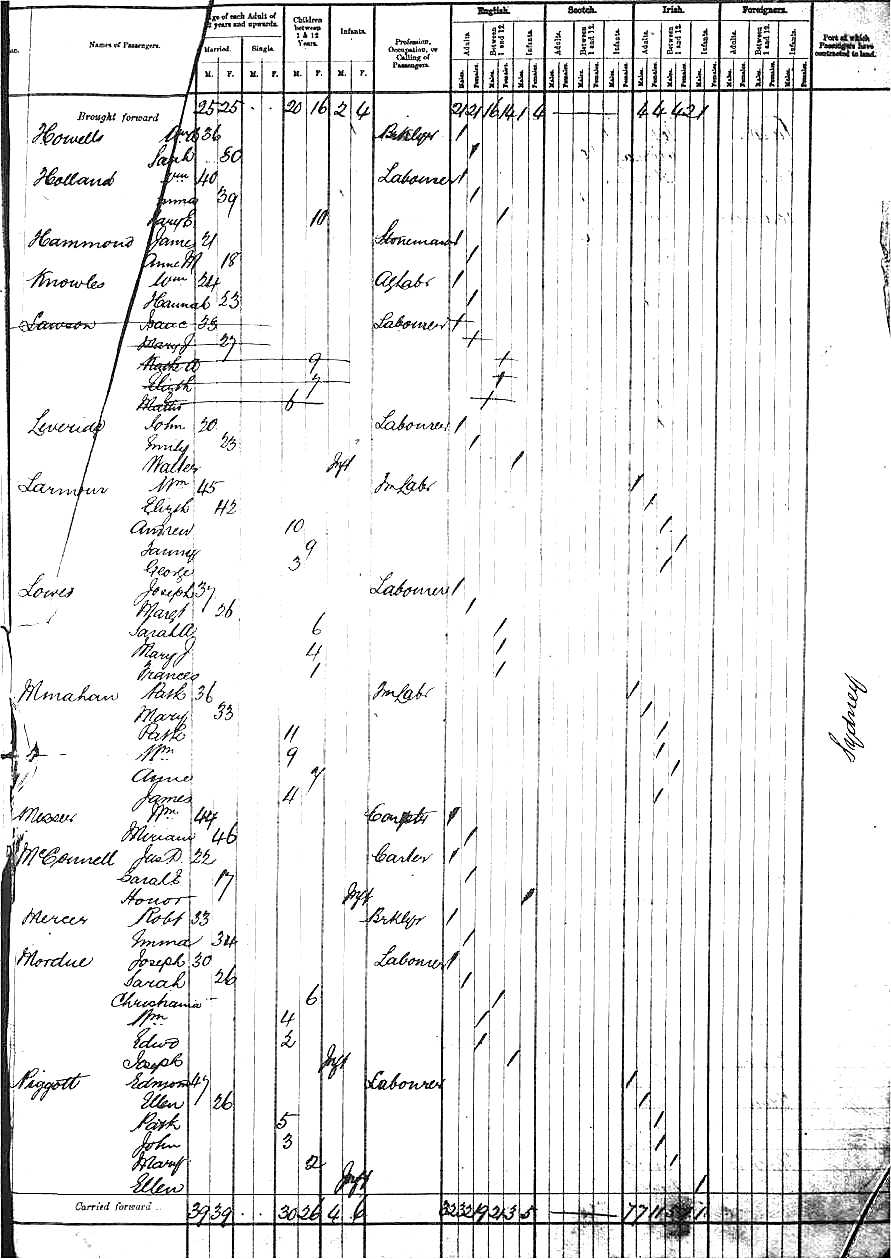 Names of Passengers.
Age of each Adult of 12 years and upwards.
Married. Single.
M. F. M. F.
Children between 1 & 12 Years.
M. F.
Infants.
M. F.
Profession, Occupation, or Calling of Passengers.
English. Scotch. Irish. Foreigners.
Adults. Between 1 and 12. Infants.
Port at which Passengers have contracted to land.
Brought forward 25 25 20 16 2 4 21 21 16 14 1 4 4 4 4 2 1
Howells 36 Brklyr 1
Sarah 30 1
Holland Wm 40 Labourer 1
Emma 39 1
Mary E 10 1
Hammond James 21 Stonemason 1
Anne M 18 1
Knowles Wm 24 Ag Labr 1
Hannah 23 1
Lawson Isaac 33 Labourer 1
Mary J 27 1
9 1
Elizth 7 1
6 1
Leveridge John 20 Labourer 1
Emily 23 1
Walter Inft 1
Larmour Wm 45 Fm Labr 1
Elizth 42 1
Andrew 10 1
Fanny 9 1
George 3 1
Lowes Joseph 37 Labourer 1
Margt 36 1
Sarah A 6 1
Mary J 4 1
Frances 1 1
Mmahan Patk 36 Fm Labr 1
Mary 33 1
Patk 11 1
Wm 9 1
Anne 7 1
James 4 1
Messer Wm 44 1
Miriam 46 1
McConnell Jas D. 22 Carter 1
Sarah E 17 1
Honor Inft 1
Mercer Robt 33 Brklyr 1
Emma 34 1
Mordue Joseph 30 Labourer 1
Sarah 26 1
Christiana 6 1
Wm 4 1
Edwd 2 1
Joseph Inft 1
Piggott Edmond 47 Labourer 1
Ellen 26 1
Patk 5 1
John 3 1
Mary 2 1
Ellen Inft 1
Sydney
Carried forward 39 39 30 26 4 6 32 32 19 21 3 5 7 7 11 5 1